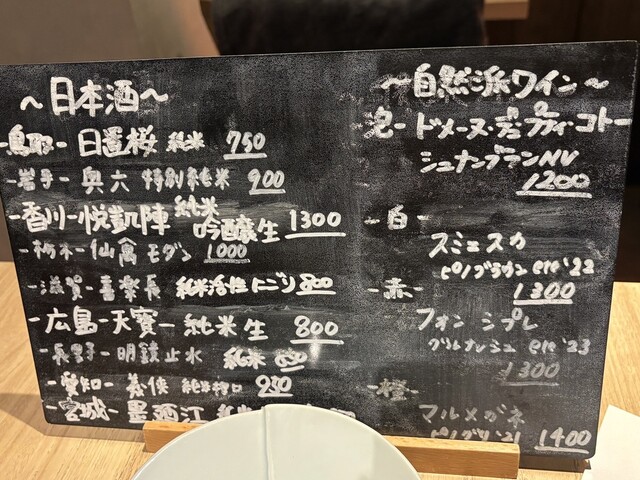 ~日本酒~
-鳥取- 日置桜 純米 750
-岩手- 奥六 特別純米 900
-香川-悦凱陣 純米吟醸生 1300
-栃木-仙禽 モダン 1000
-滋賀-喜楽長 純米活性にごり 800
-広島-天寶一 純米生 800
-長野-明鏡止水 純米
-愛知-義侠 純米
-宮城-墨廼江 純米
~自然派ワイン~
泡-ドメーヌ・デ・プティ・コトー
シュナンブランNV
1200
-白-
スミェスカ
ピノブラウン etc '22
1300
-赤-
フォン シプレ
グルナッシュ etc '23
1300
-橙-
マルメガネ
ピノグリ '21 1400